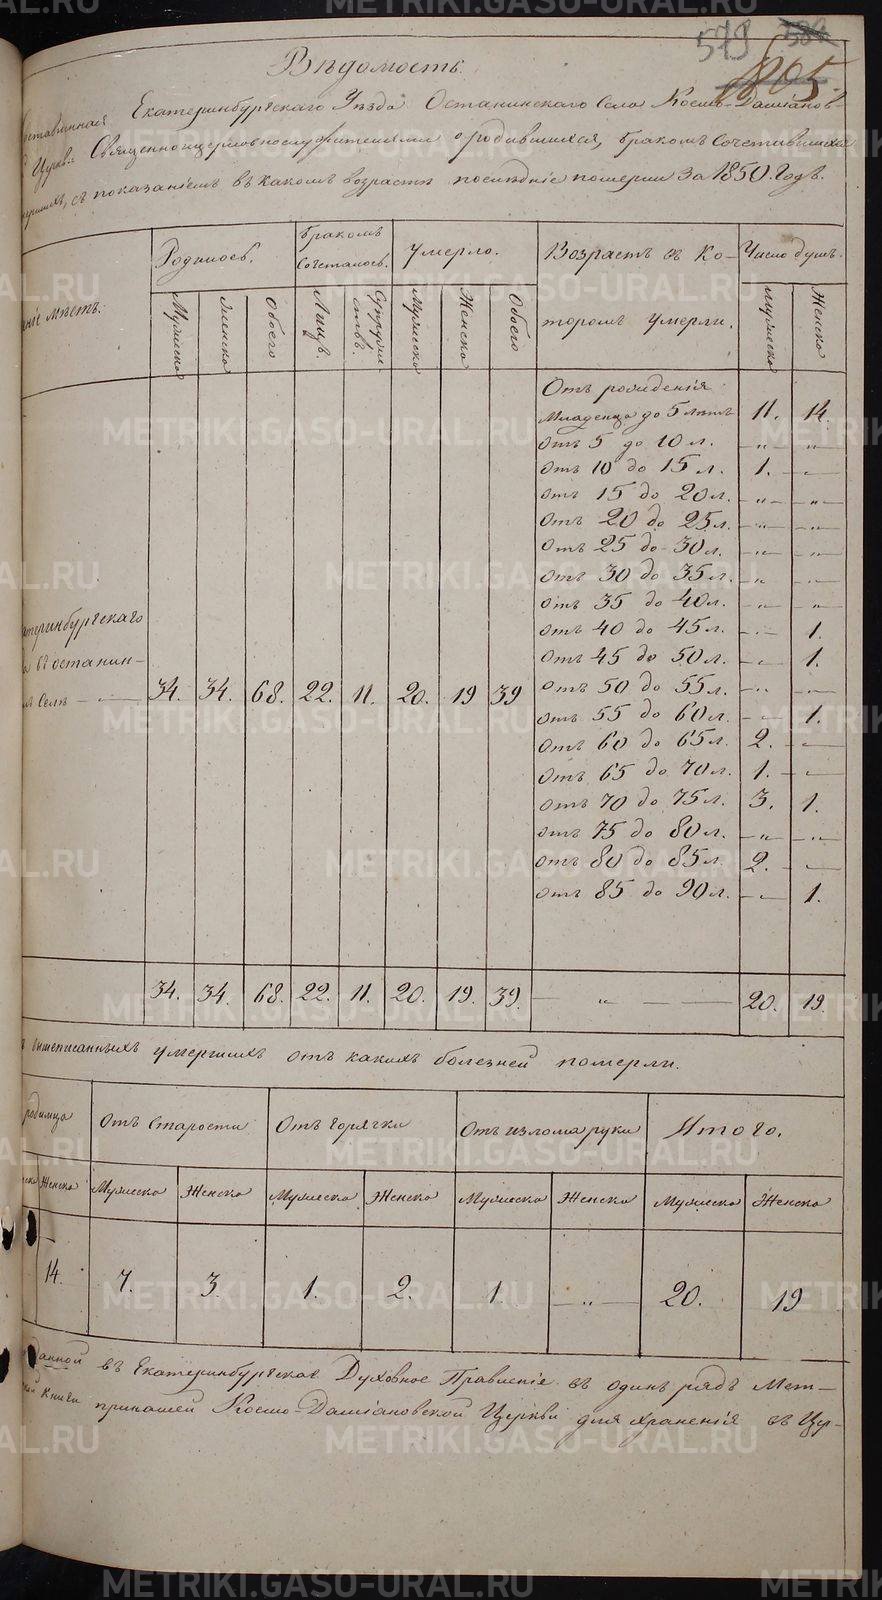 579
805
Вѣдомость.
Екатеринбургскаго Уѣзда Останинскаго Села Космо-Даміанов-
Церкви Священноцерковнослужителями о родившихся, бракомъ сочетавшихся
съ показаніемъ въ какомъ возрастѣ послѣдніе померли за 1850. Годъ.
Родилось. Бракомъ Сочеталось. Умерло. Возрастъ въ ко- Число душъ.
ніе мѣстъ. Мужеска Женска Обоего Лицъ. Супруже-ствъ. Мужеска Женска Обоего торомъ умерли. Мужеска Женска
Отъ рожденія
Младенца до 5 лѣтъ 11. 14.
Отъ 5 до 10 л. „ „
Отъ 10 до 15 л. 1. —
Отъ 15 до 20 л. „ „
Отъ 20 до 25 л. „ „
Отъ 25 до 30 л. „ „
Отъ 30 до 35 л. „ „
Отъ 35 до 40 л. „ „
Отъ 40 до 45 л. — 1.
атеринбургскаго
Отъ 45 до 50 л. — 1.
въ останин-
Селѣ — 34. 34. 68. 22. 11. 20. 19 39 Отъ 50 до 55 л. „ —
Отъ 55 до 60 л. — 1.
Отъ 60 до 65 л. 2. —
Отъ 65 до 70 л. 1. —
Отъ 70 до 75 л. 3. 1.
Отъ 75 до 80 л. „ „
Отъ 80 до 85 л. 2. —
Отъ 85 до 90 л. — 1.
34. 34. 68. 22. 11. 20. 19. 39. — „ — 20. 19.
вышеписанныхъ умершихъ отъ какихъ болезней померли.
родимца Отъ Старости Отъ Горячки Отъ излома руки Итого.
Женска Мужеска Женска Мужеска Женска Мужеска Женска Мужеска Женска
14. 7. 3. 1. 2. 1. — „ — 20. 19
данной въ Екатеринбургское Духовное Правленіе въ одинъ рядъ Мет-
книги принашей Космо-Даміановской Церкви для храненія въ Цер-
METRIKI.GASO-URAL.RU